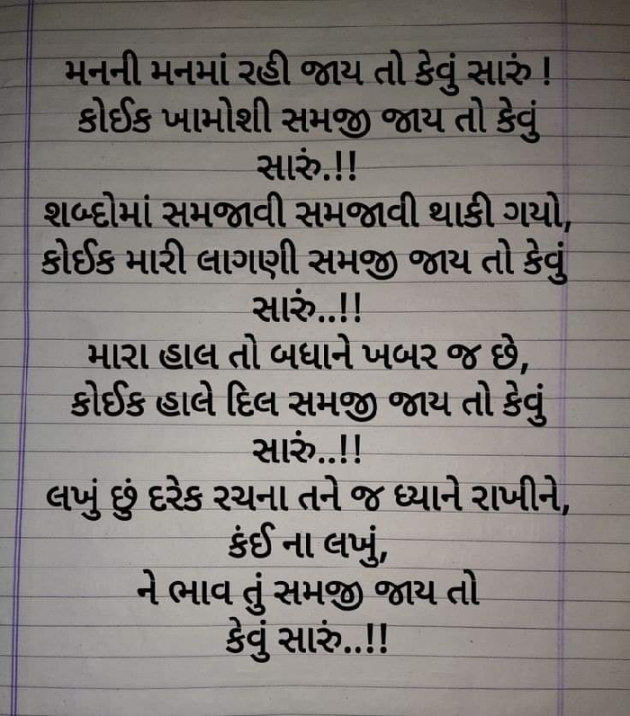 મનની મનમાં રહી જાય તો કેવું સારું !
કોઈક ખામોશી સમજી જાય તો કેવું
સારું.!!
શબ્દોમાં સમજાવી સમજાવી થાકી ગયો,
કોઈક મારી લાગણી સમજી જાય તો કેવું
સારું..!!
મારા હાલ તો બધાને ખબર જ છે,
કોઈક હાલે દિલ સમજી જાય તો કેવું
સારું..!!
લખું છું દરેક રચના તને જ ધ્યાને રાખીને,
કંઈ ના લખું,
ને ભાવ તું સમજી જાય તો
કેવું સારું..!!